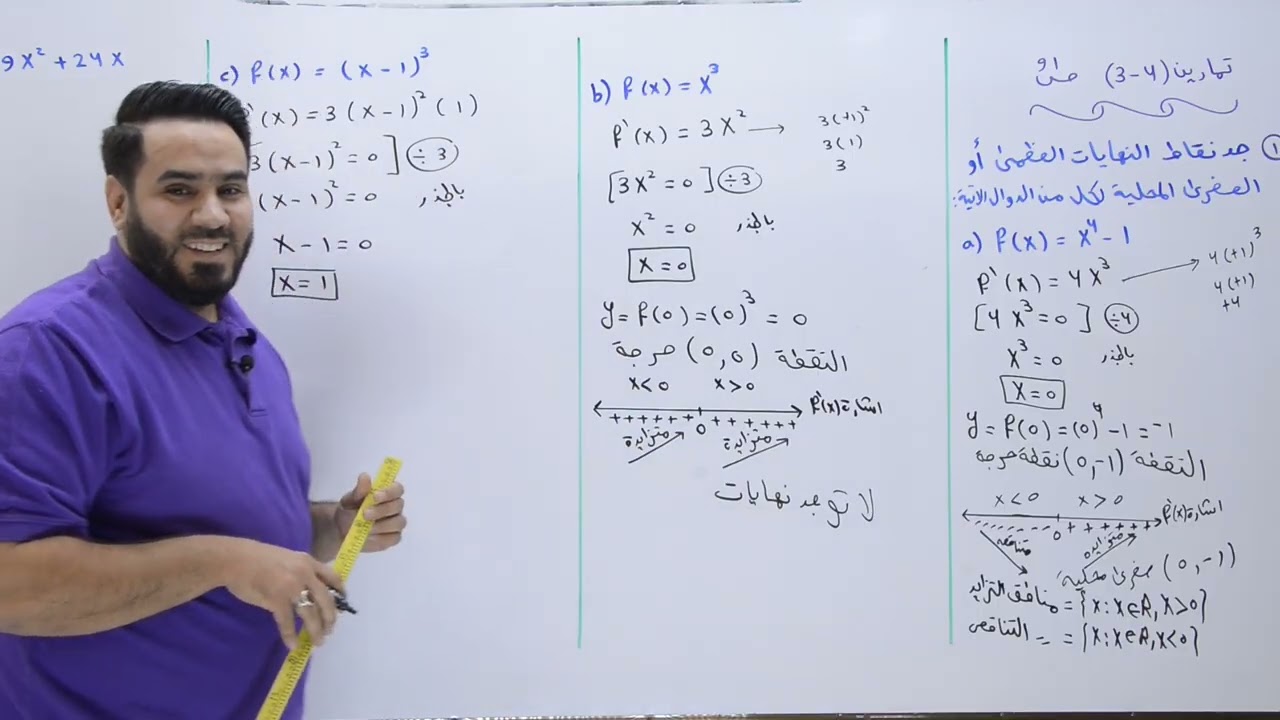 تمارين (4-3)
1 جد نقاط النهايات العظمى أو
الصغرى المحلية لكل من الدوال الاتية:
a) f(x) = x⁴ - 1
f'(x) = 4x³ → 4(+1)³
4(+1)
+4
[4x³ = 0] ÷4
x³ = 0 بالجذر
x = 0
y = f(0) = (0)⁴ - 1 = -1
النقطة (0,-1) نقطة حرجة
x < 0 x > 0
- - - - - - - - 0 + + + + + + اشارة f'(x)
متناقصة متزايدة
(0,-1) صغرى محلية
مناطق التزايد = {x: x∈R, x>0}
= التناقص = {x: x∈R, x<0}
b) f(x) = x³
f'(x) = 3x² → 3(+1)²
3(1)
3
[3x² = 0] ÷3
x² = 0 بالجذر
x = 0
y = f(0) = (0)³ = 0
النقطة (0,0) حرجة
x < 0 x > 0
+ + + + + + 0 + + + + + + اشارة f'(x)
متزايدة متزايدة
لا توجد نهايات
c) f(x) = (x - 1)³
'(x) = 3(x - 1)²(1)
3(x - 1)² = 0] ÷3
(x - 1)² = 0 بالجذر
x - 1 = 0
x = 1
9x² + 24x